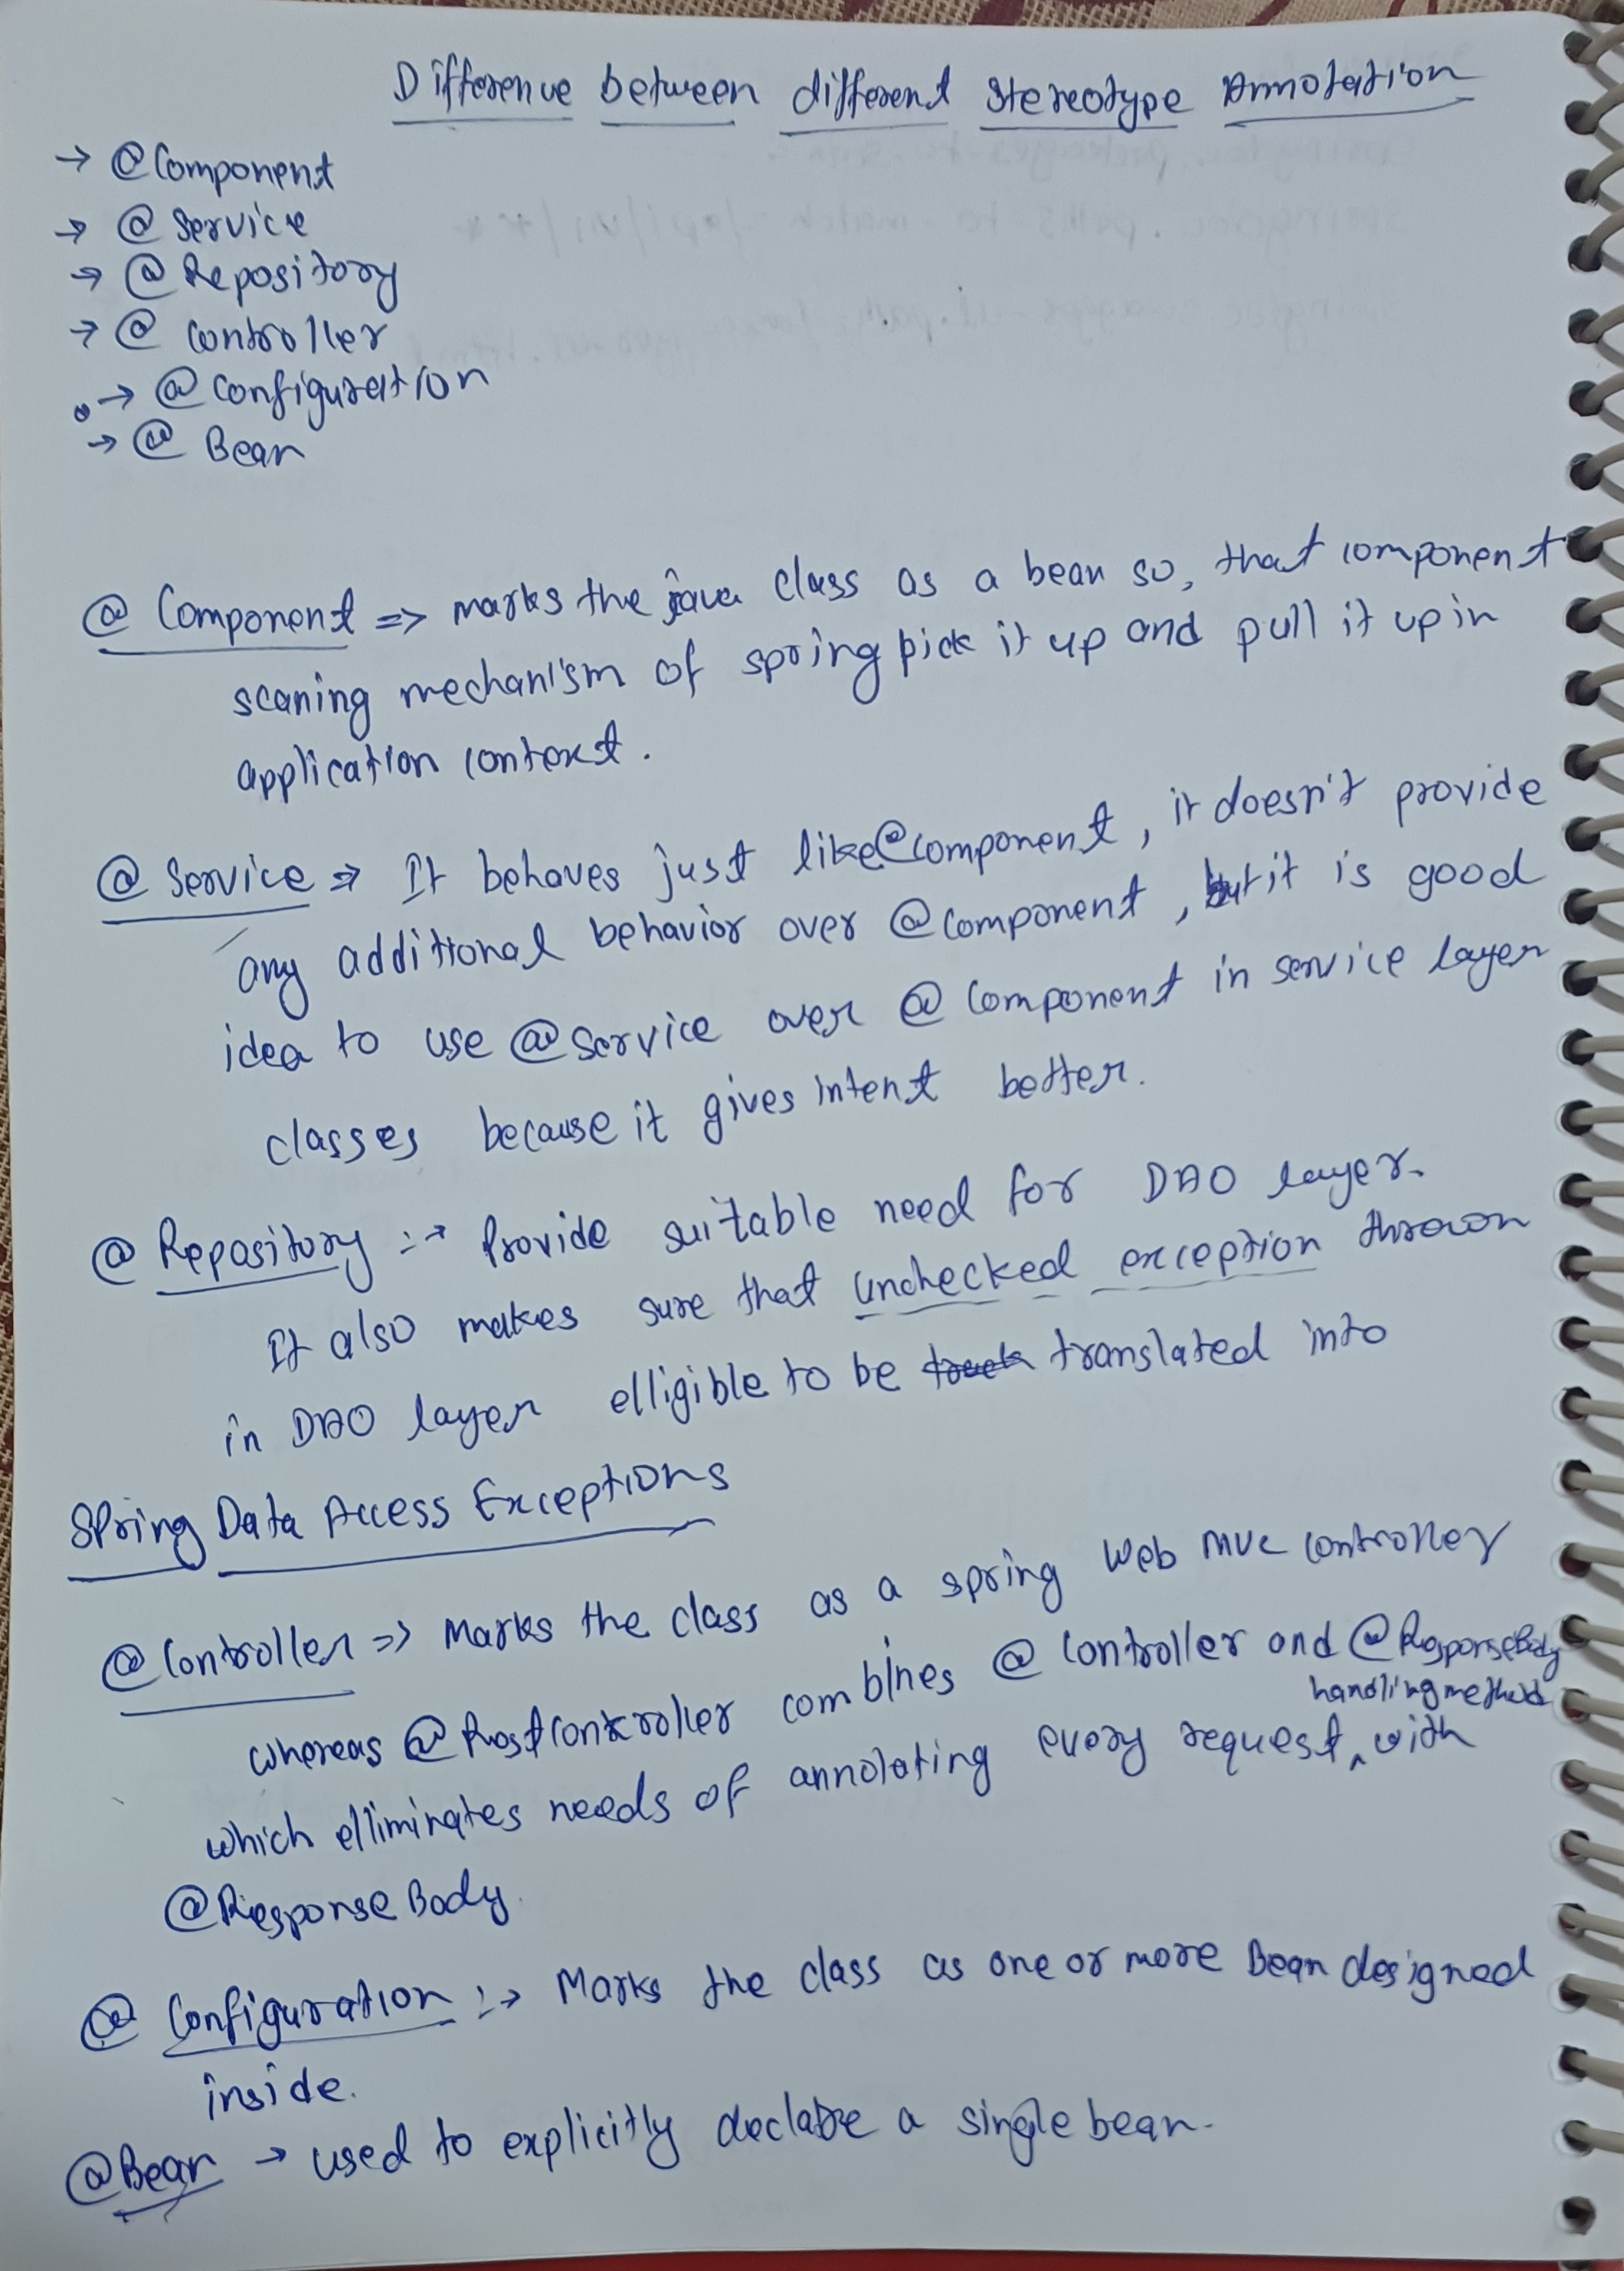 Difference between different Stereotype Annotation
→ @Component
→ @ Service
→ @ Repository
→ @ Controller
→ @ Configuration
→ @ Bean
@ Component => marks the java class as a bean so, that component
scaning mechanism of spring pick it up and pull it up in
application context.
@ Service => It behaves just like @component, it doesn't provide
any additional behavior over @component, but it is good
idea to use @ Service over @ Component in service layer
classes because it gives intent better.
@ Repository :→ Provide suitable need for DAO layer.
It also makes sure that unchecked exception thrown
in DAO layer elligible to be translated into
Spring Data Access Exceptions
@Controller => Marks the class as a spring Web MVC controller
whereas @RestController combines @ Controller and @ResponseBody
which elliminates needs of annotating every request handling methods with
@Response Body.
@ Configuration :→ Marks the class as one or more Bean designed
inside.
@Bean → used to explicitly declare a single bean.